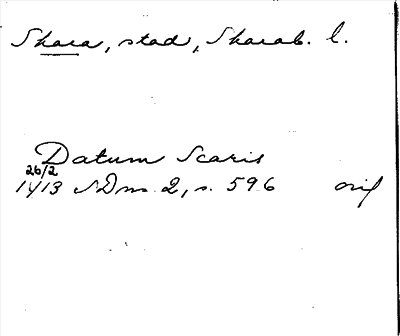 Skara, stad, Skarab. l.
Datum Scaris
26/2
1413 SDns 2, s. 596 orig